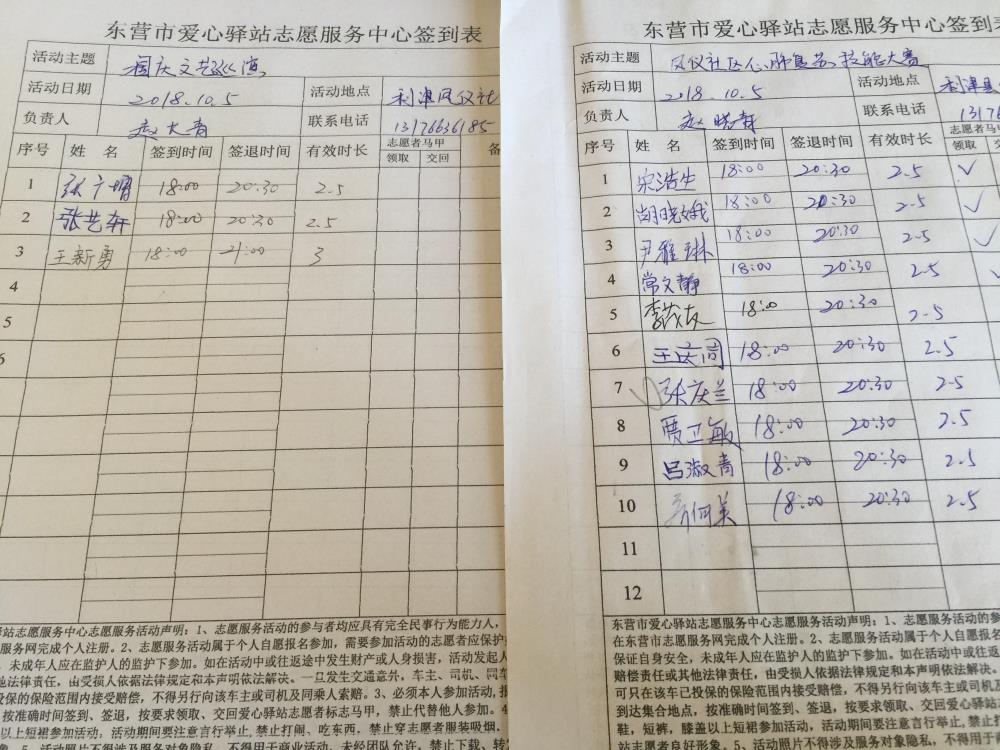 东营市爱心驿站志愿服务中心签到表
活动主题 国庆文艺汇演
活动日期 2018.10.5 活动地点 利津凤仪社
负责人 赵大青 联系电话 13176636185
序号 姓名 签到时间 签退时间 有效时长 志愿者马甲 备
领取 交回
1 张广增 18:00 20:30 2.5
2 张艺轩 18:00 20:30 2.5
3 王新勇 18:00 21:00 3
4
5
6
驿站志愿服务中心志愿服务活动声明：1、志愿服务活动的参与者均应具有完全民事行为能力人，
服务网完成个人注册。2、志愿服务活动属于个人自愿报名参加，需要参加活动的志愿者应保护
，未成年人应在监护人的监护下参加。如在活动中或往返途中发生财产或人身损害，活动发起人
他法律责任，由受损人依据法律规定和本声明依法解决。一旦发生交通意外，车主、司机、同车
投保的保险范围内接受赔偿，不得另行向该车主或司机及同乘人索赔。3、必须本人参加活动，报
按准确时间签到、签退，按要求领取、交回爱心驿站志愿者标志马甲，禁止代替他人参加。4
以上短裙参加活动，活动期间要注意言行举止，禁止打闹、吃东西，禁止穿志愿者服装吸烟、
象。5、活动照片不得涉及服务对象隐私，不得用于商业活动，未经团队允许，禁止下载、转
东营市爱心驿站志愿服务中心签到表
活动主题 凤仪社区心肺复苏技能大赛
活动日期 2018.10.5 活动地点 利津县
负责人 赵晓青 联系电话 13176
序号 姓名 签到时间 签退时间 有效时长 志愿者马甲
领取 交
1 宋浩生 18:00 20:30 2.5 ✓
2 胡晓娥 18:00 20:30 2.5 ✓
3 尹雅琳 18:00 20:30 2.5 ✓
4 常文静 18:00 20:30 2.5
5 李茂友 18:00 20:30 2.5
6 王庆同 18:00 20:30 2.5
7 张庆兰 18:00 20:30 2.5
8 贾卫敏 18:00 20:30 2.5
9 吕淑青 18:00 20:30 2.5
10 18:00 20:30 2.5
11
12
东营市爱心驿站志愿服务中心志愿服务活动声明：1、志愿服务活动的参
在东营市志愿服务网完成个人注册。2、志愿服务活动属于个人自愿报名
保证自身安全，未成年人应在监护人的监护下参加。如在活动中或往返
赔偿责任或其他法律责任，由受损人依据法律规定和本声明依法解决。
可只在该车已投保的保险范围内接受赔偿，不得另行向该车主或司机及
到达集合地点，按准确时间签到、签退，按要求领取、交回爱心驿站志
鞋，短裤，膝盖以上短裙参加活动，活动期间要注意言行举止，禁止打
站志愿者良好形象。5、活动照片不得涉及服务对象隐私，不得用于